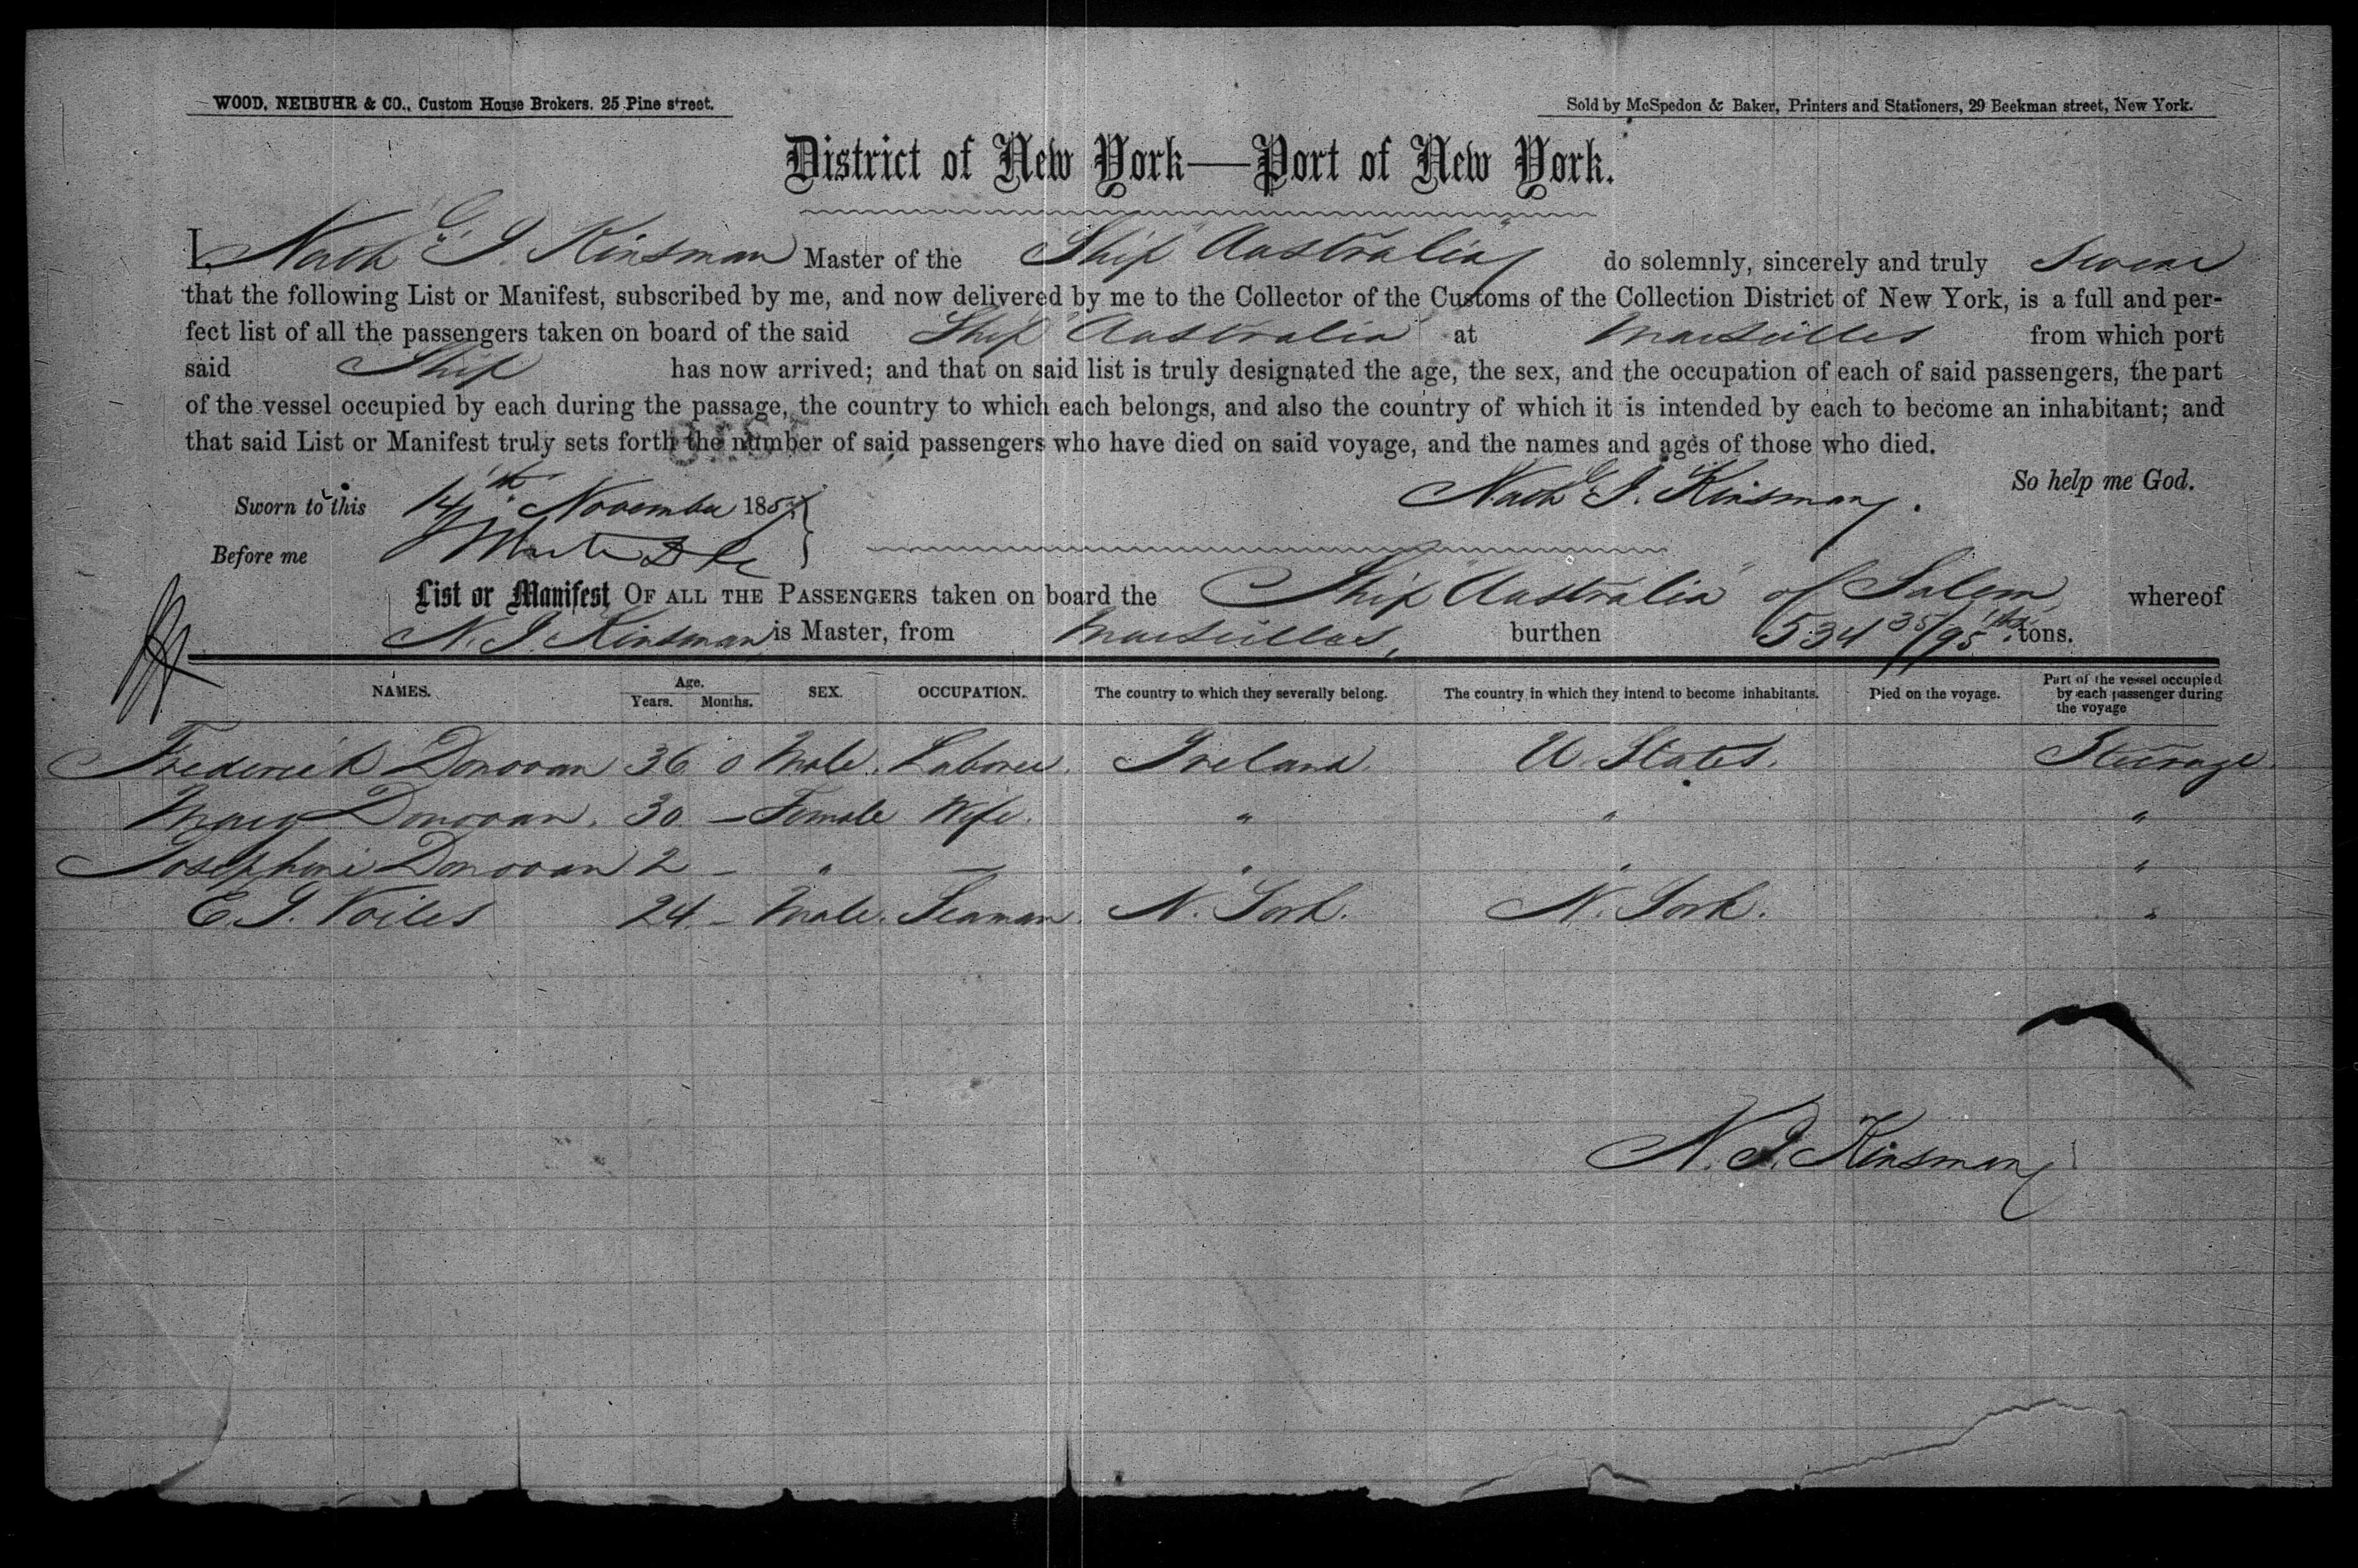 WOOD, NEIBUHR & CO., Custom House Brokers. 25 Pine street.
Sold by McSpedon & Baker, Printers and Stationers, 29 Beekman street, New York.
District of New York—Port of New York.
I, Nath G. I. Kinsman Master of the Ship "Australia" do solemnly, sincerely and truly Swear
that the following List or Manifest, subscribed by me, and now delivered by me to the Collector of the Customs of the Collection District of New York, is a full and per-
fect list of all the passengers taken on board of the said Ship "Australia" at Marseilles from which port
said Ship has now arrived; and that on said list is truly designated the age, the sex, and the occupation of each of said passengers, the part
of the vessel occupied by each during the passage, the country to which each belongs, and also the country of which it is intended by each to become an inhabitant; and
that said List or Manifest truly sets forth the number of said passengers who have died on said voyage, and the names and ages of those who died.
So help me God.
Sworn to this 14th November 1857 Nath G. I. Kinsman.
Before me
List or Manifest OF ALL THE PASSENGERS taken on board the Ship "Australia" of Salem whereof
N. I. Kinsman is Master, from Marseilles, burthen 534 35/95ths tons.
NAMES. Age. Years. Months. SEX. OCCUPATION. The country to which they severally belong. The country in which they intend to become inhabitants. Died on the voyage. Part of the vessel occupied by each passenger during the voyage
Frederick Donovan 36 0 Male. Laborer. Ireland. U. States. Steerage.
Mary Donovan. 30. — Female Wife. " " "
Josephine Donovan 2 — " — " " "
E. I. Voiles 24. — Male. Seaman. N. York. N. York. "
N. I. Kinsman